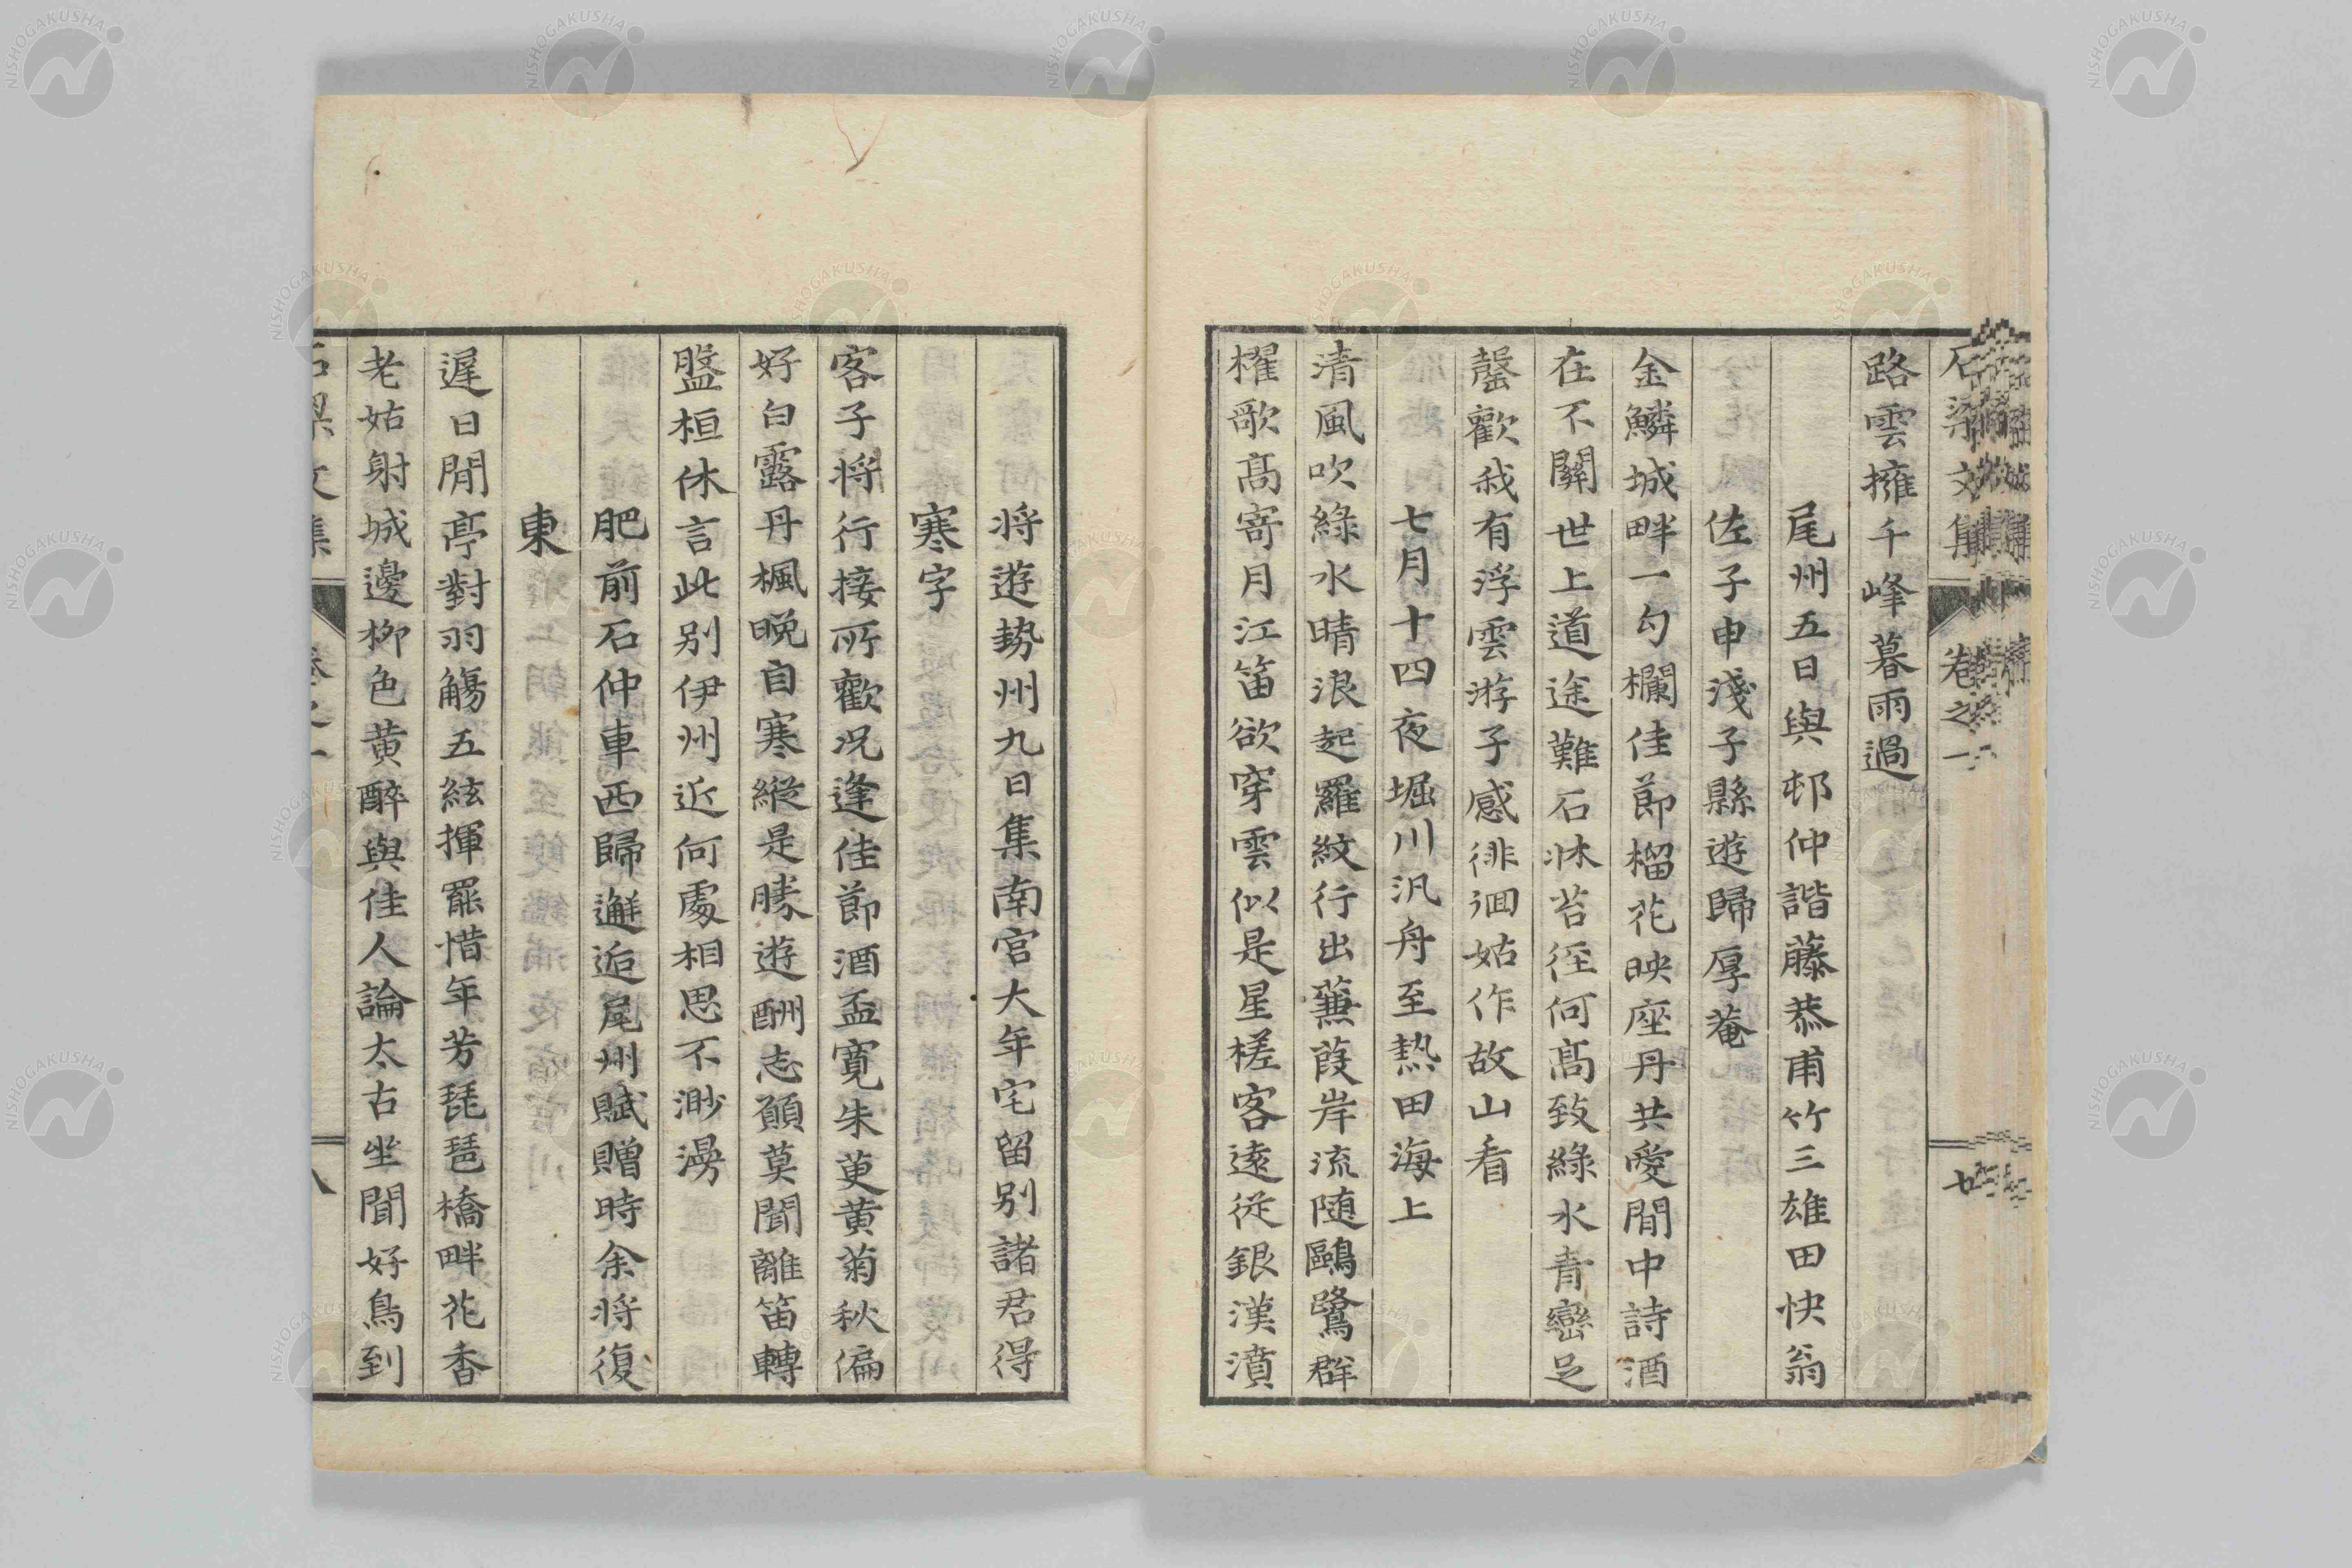 路雲擁千峰暮雨過
尾州五日與邨仲諧藤恭甫竹三雄田快翁
佐子申淺子縣遊歸厚菴
金鱗城畔一勺欄佳節榴花映座丹共愛閒中詩酒
在不關世上道途難石牀苔徑何高致綠水青巒足
罄歡我有浮雲游子感徘徊姑作故山看
七月十四夜堀川汎舟至熱田海上
清風吹綠水晴浪起羅紋行出蒹葭岸流随鷗鷺群
櫂歌高寄月江笛欲穿雲似是星槎客遠從銀漢濆
将遊勢州九日集南宮大年宅留別諸君得
寒字
客子将行接所歡况逢佳節酒盃寬朱萸黄菊秋偏
好白露丹楓晚自寒縱是勝遊酬志願莫聞離笛轉
盤桓休言此別伊州近何處相思不渺漫
肥前石仲車西歸邂逅尾州賦贈時余将復
東
遲日閒亭對羽觴五絃揮罷惜年芳琵琶橋畔花香
老姑射城邊柳色黄醉與佳人論太古坐聞好鳥到
石梁文集
卷之一
八
石梁文集
卷之一
七
NISHOGAKUSHA